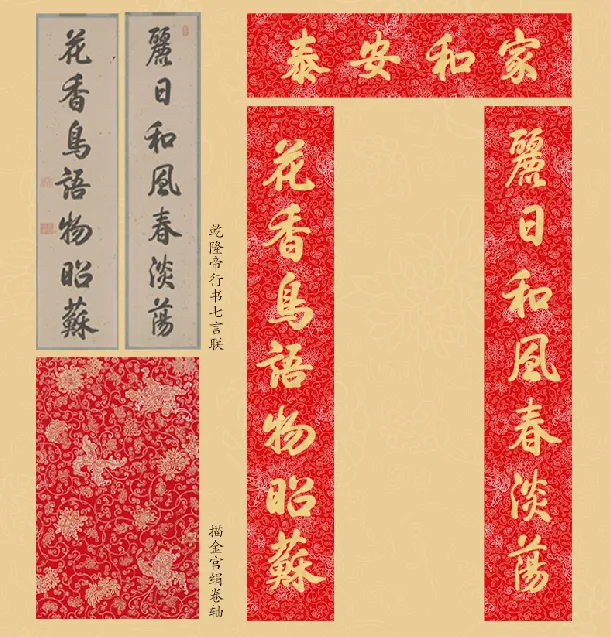 家和安泰
麗日和風春淡蕩
花香鳥語物昭蘇
麗日和風春淡蕩
花香鳥語物昭蘇
乾隆帝行书七言联
描金宫绢卷轴